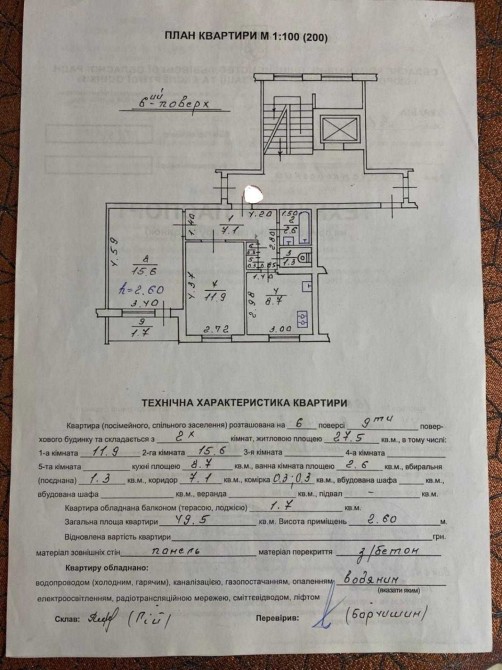 ПЛАН КВАРТИРИ М 1:100 (200)
6-ий поверх
1
7.1
4.20
1.40
1.50
2
2.6
2.80
3
1.3
4.59
8
15.6
h=2.60
3.40
9
1.7
4.37
7
11.9
2.72
2.98
4
8.7
3.00
ТЕХНІЧНА ХАРАКТЕРИСТИКА КВАРТИРИ
Квартира (посімейного, спільного заселення) розташована на 6 поверсі 9ти повер-
хового будинку та складається з 2х кімнат, житловою площею 27.5 кв.м, в тому числі:
1-а кімната 11.9 2-га кімната 15.6 3-я кімната 4-а кімната
5-та кімната кухні площею 8.7 кв.м., ванна кімната площею 2.6 кв.м., вбиральня
(поєднана) 1.3 кв.м., коридор 7.1 кв.м., комірка 0,3; 0,3 кв.м., вбудована шафа кв.м.,
вбудована шафа кв.м., веранда кв.м., підвал – кв.м.
Квартира обладнана балконом (терасою, лоджією) 1.7 кв.м.
Загальна площа квартири 49,5 кв.м. Висота приміщень 2.60 м.
Відновлена вартість квартири грн.
матеріал зовнішніх стін панель матеріал перекриття з/бетон
Квартиру обладнано:
водопроводом (холодним, гарячим), каналізацією, газопостачанням, опаленням водяним
(вказати яким)
електроосвітленням, радіотрансляційною мережею, сміттєвідводом, ліфтом
Склав: (Пій) Перевірив: (Барчишин)